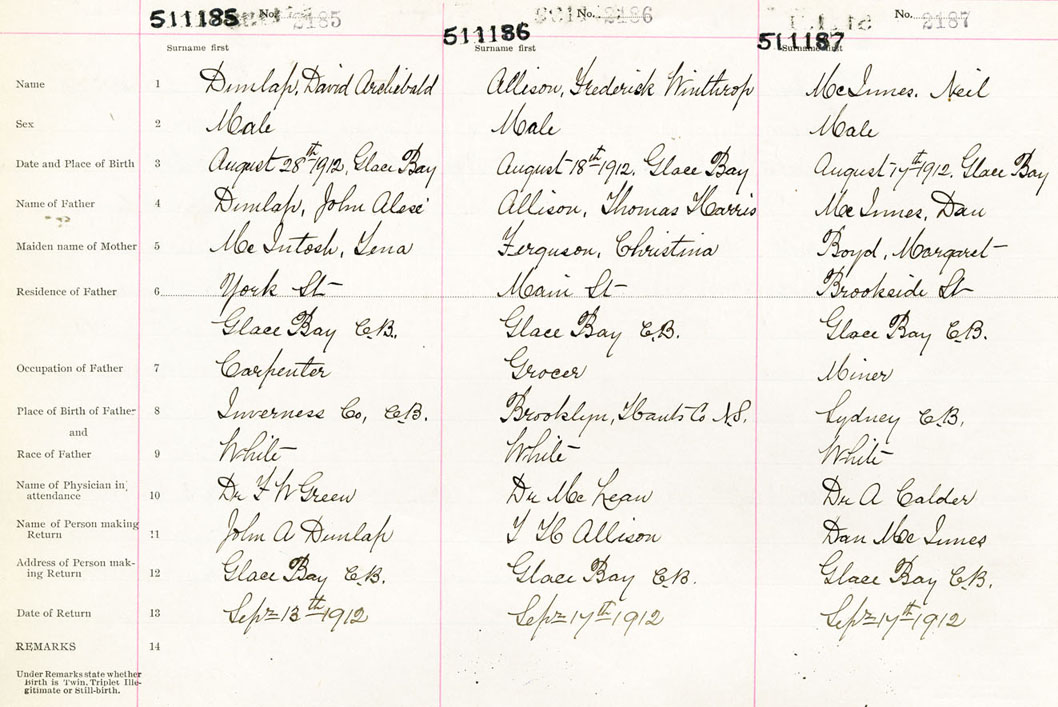 511185 No. 2185 511186 No. 2186 511187 No. 2187
Surname first Surname first Surname first
Name 1 Dunlap, David Archibald Allison, Frederick Winthrop McInnes, Neil
Sex 2 Male Male Male
Date and Place of Birth 3 August 28th 1912, Glace Bay August 18th 1912, Glace Bay August 17th 1912, Glace Bay
Name of Father 4 Dunlap, John Allison, Thomas Harris McInnes, Dan
Maiden name of Mother 5 McIntosh, Lena Ferguson, Christina Boyd, Margaret
Residence of Father 6 York St Main St Brookside St
Glace Bay C.B. Glace Bay C.B. Glace Bay C.B.
Occupation of Father 7 Carpenter Grocer Miner
Place of Birth of Father 8 Inverness Co, C.B. Brooklyn, Hants Co N.S. Sydney C.B.
and
Race of Father 9 White White White
Name of Physician in attendance 10 Dr F W Green Dr McLean Dr A Calder
Name of Person making Return 11 John A Dunlap T H Allison Dan McInnes
Address of Person making Return 12 Glace Bay C.B. Glace Bay C.B. Glace Bay C.B.
Date of Return 13 Sept 13th 1912 Sept 17th 1912 Sept 17th 1912
REMARKS 14
Under Remarks state whether
Birth is Twin, Triplet Ille-
gitimate or Still-birth.